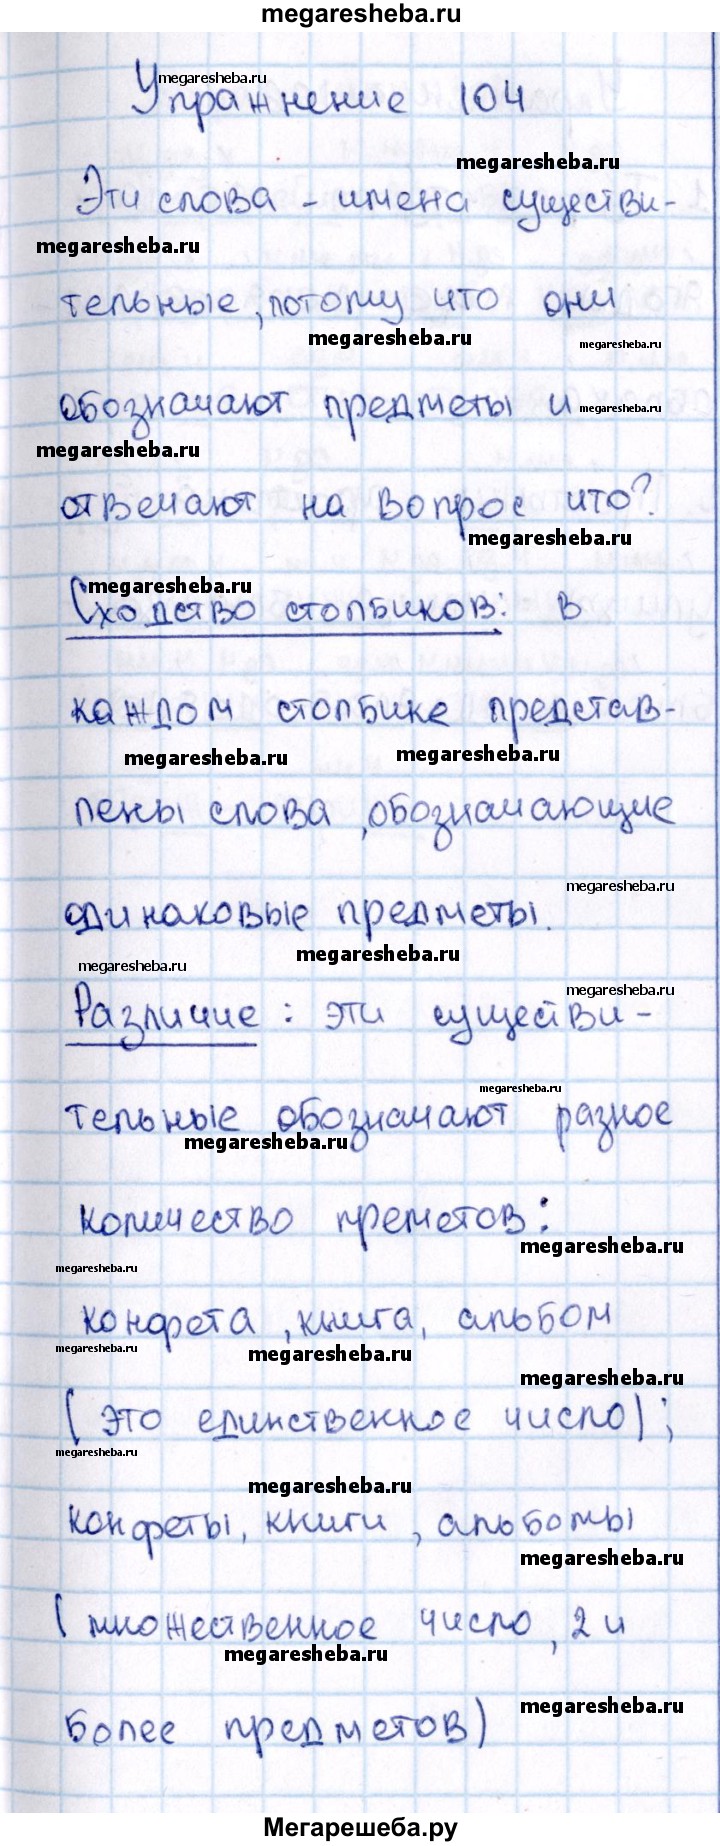 megaresheba.ru
megaresheba.ru
Упражнение 104
megaresheba.ru
Эти слова - имена существи-
megaresheba.ru
тельные, потому что они
megaresheba.ru
megaresheba.ru
обозначают предметы и
megaresheba.ru
megaresheba.ru
отвечают на вопрос что?
megaresheba.ru
megaresheba.ru
Сходство столбиков: в
каждом столбике представ-
megaresheba.ru
megaresheba.ru
лены слова, обозначающие
megaresheba.ru
одинаковые предметы.
megaresheba.ru
megaresheba.ru
megaresheba.ru
Различие: эти существи-
megaresheba.ru
тельные обозначают разное
megaresheba.ru
количество преметов:
megaresheba.ru
megaresheba.ru
конфета, книга, альбом
megaresheba.ru
megaresheba.ru
megaresheba.ru
(это единственное число);
megaresheba.ru
megaresheba.ru
конфеты, книги, альбомы
megaresheba.ru
(множественное число, 2 и
megaresheba.ru
megaresheba.ru
более предметов)
Мегарешеба.ру